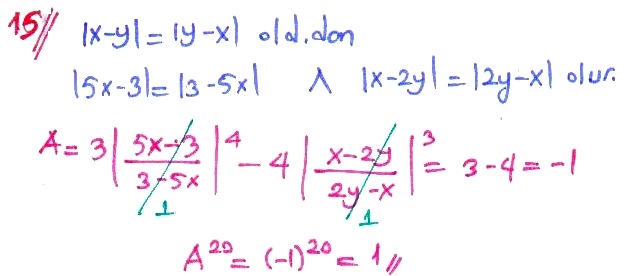 15// |x-y| = |y-x| old.dan
|5x-3| = |3-5x| ∧ |x-2y| = |2y-x| olur.
A = 3 |5x-3 / 3-5x|^4 - 4 |x-2y / 2y-x|^3 = 3-4 = -1
1 1
A^20 = (-1)^20 = 1//